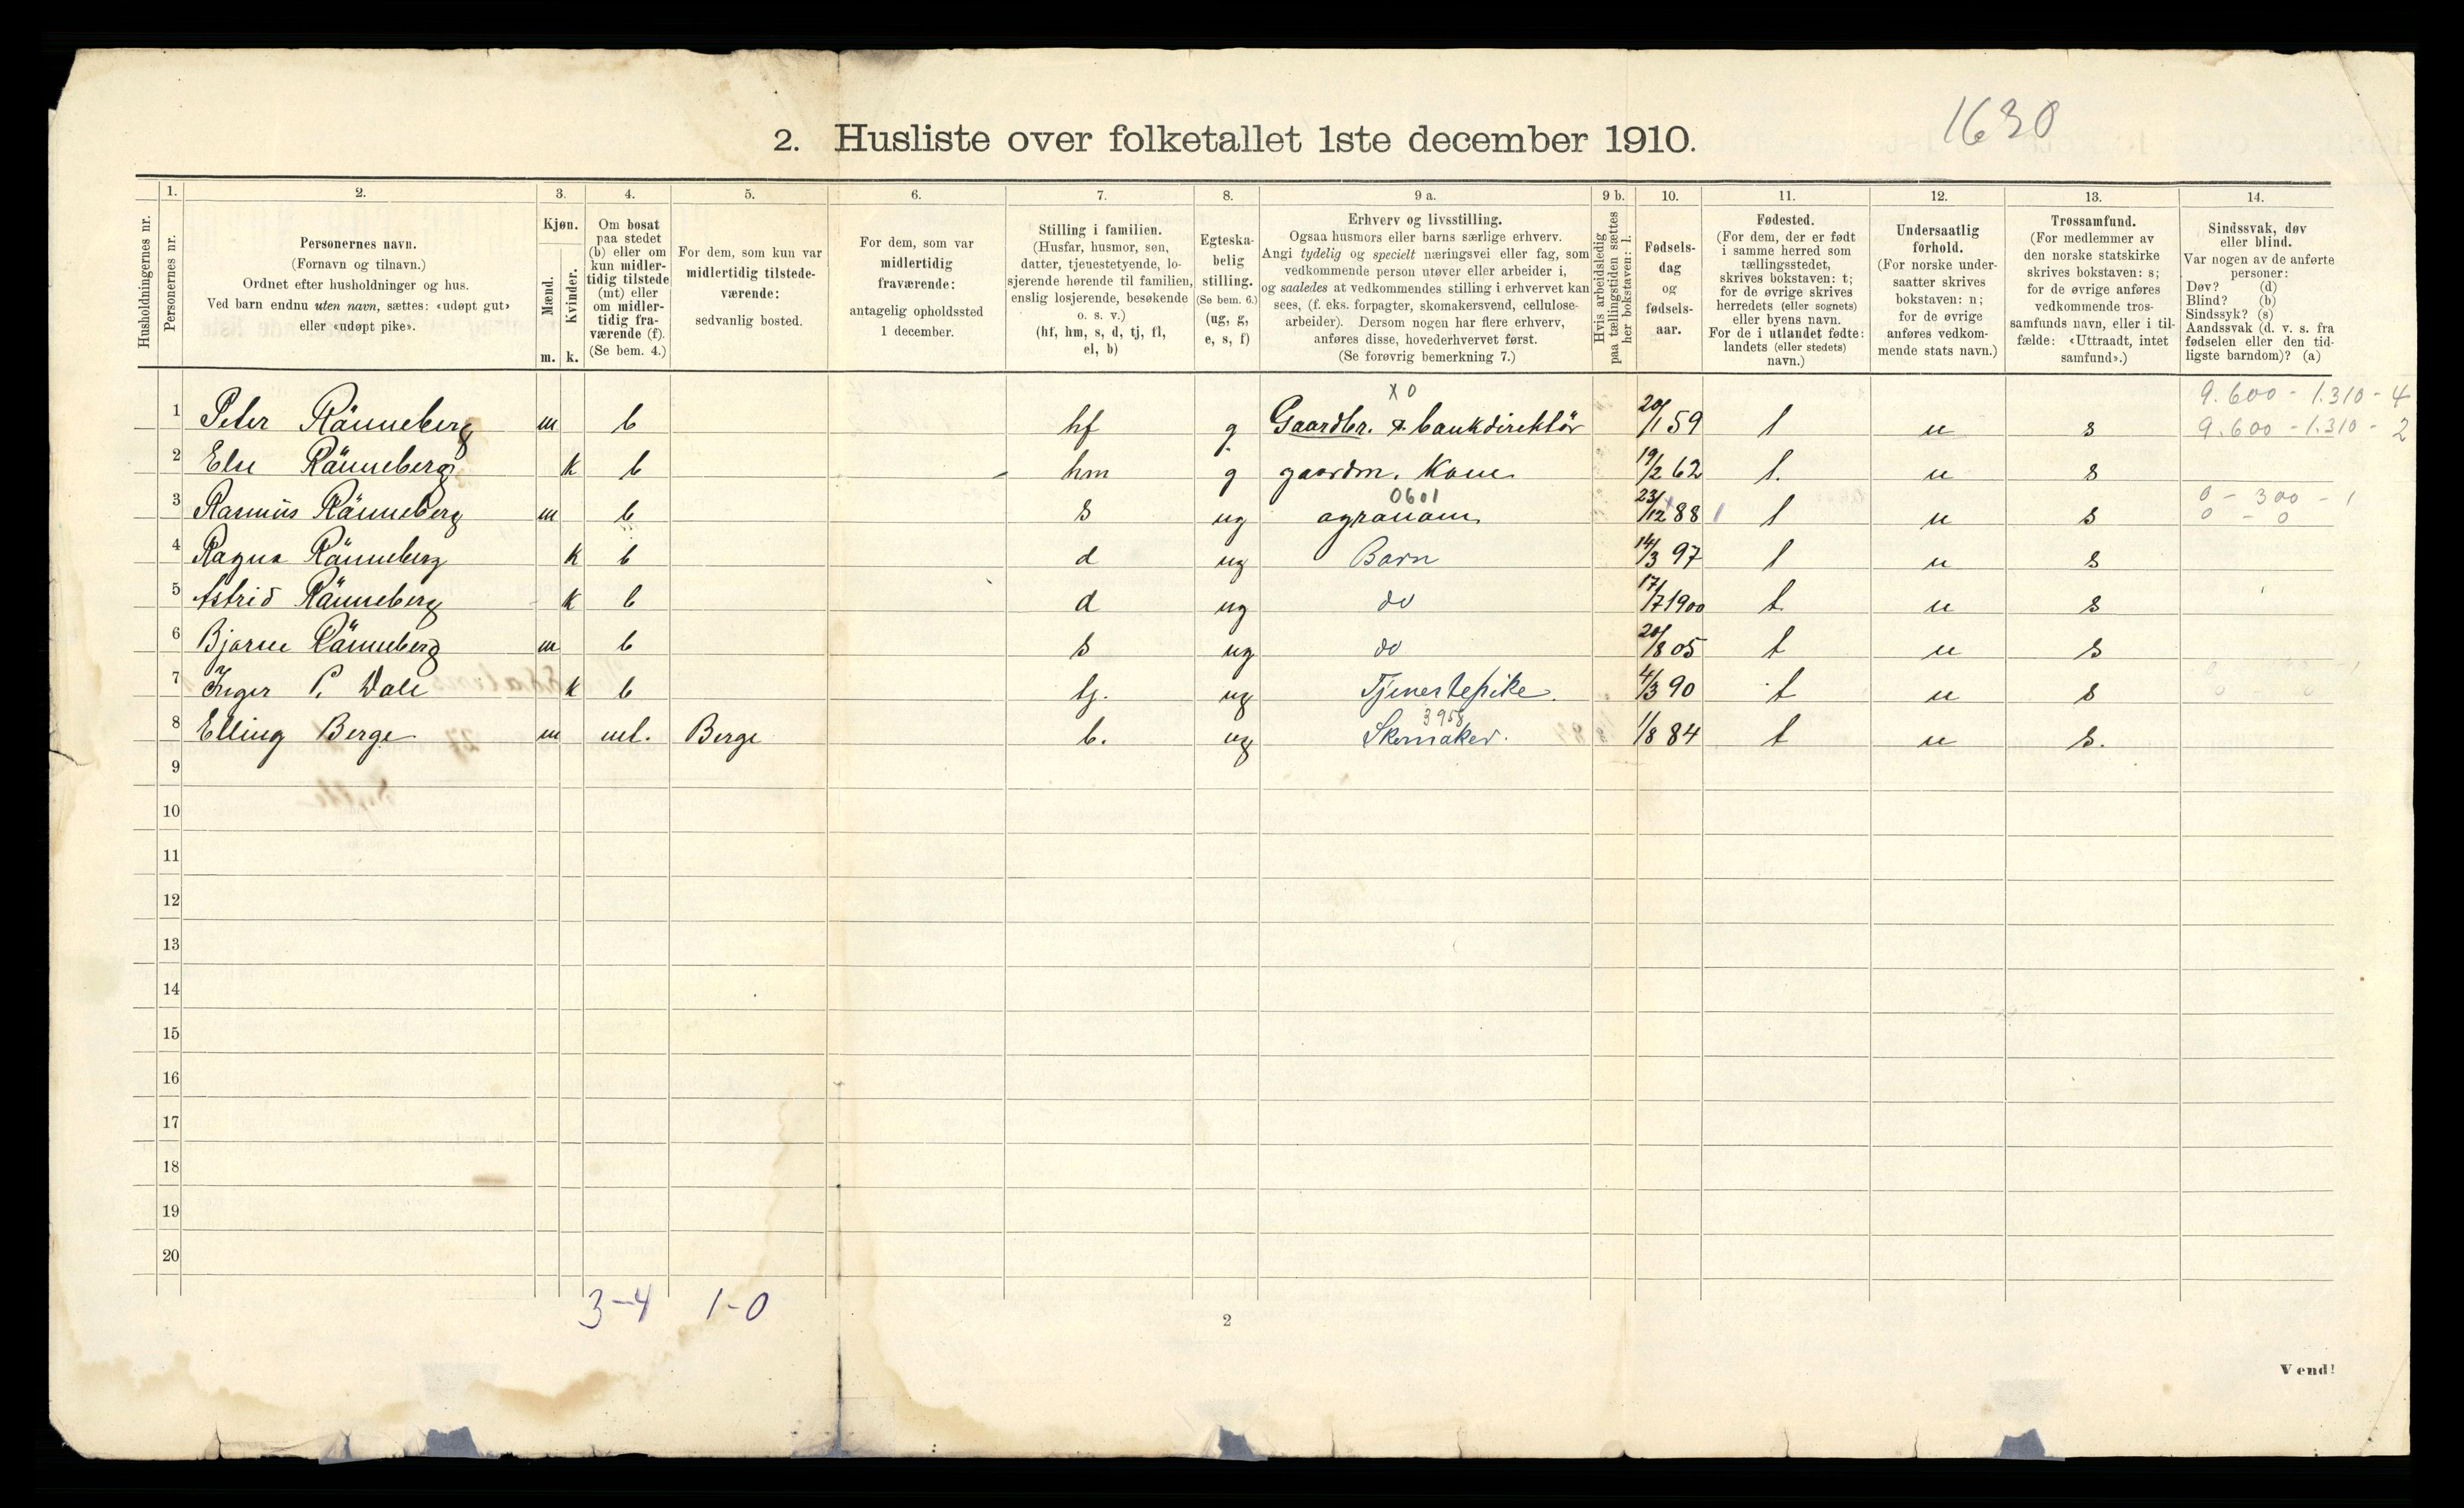 1630
2. Husliste over folketallet 1ste december 1910.
Husholdningernes nr.
1.
Personernes nr.
2.
Personernes navn.
(Fornavn og tilnavn.)
Ordnet efter husholdninger og hus.
Ved barn endnu uten navn, sættes: «udøpt gut»
eller «udøpt pike».
3.
Kjøn.
Mænd.
Kvinder.
m. k.
4.
Om bosat
paa stedet
(b) eller om
kun midler-
tidig tilstede
(mt) eller
om midler-
tidig fra-
værende (f).
(Se bem. 4.)
5.
For dem, som kun var
midlertidig tilstede-
værende:
sedvanlig bosted.
6.
For dem, som var
midlertidig
fraværende:
antagelig opholdssted
1 december.
7.
Stilling i familien.
(Husfar, husmor, søn,
datter, tjenestetyende, lo-
sjerende hørende til familien,
enslig losjerende, besøkende
o. s. v.)
(hf, hm, s, d, tj, fl,
el, b)
8.
Egteska-
belig
stilling.
(Se bem. 6.)
(ug, g,
e, s, f)
9 a.
Erhverv og livsstilling.
Ogsaa husmors eller barns særlige erhverv.
Angi tydelig og specielt næringsvei eller fag, som
vedkommende person utøver eller arbeider i,
og saaledes at vedkommendes stilling i erhvervet kan
sees, (f. eks. forpagter, skomakersvend, cellulose-
arbeider). Dersom nogen har flere erhverv,
anføres disse, hovederhvervet først.
(Se forøvrig bemerkning 7.)
9 b.
Hvis arbeidsledig
paa tællingstiden sættes
her bokstaven: l.
10.
Fødsels-
dag
og
fødsels-
aar.
11.
Fødested.
(For dem, der er født
i samme herred som
tællingsstedet,
skrives bokstaven: t;
for de øvrige skrives
herredets (eller sognets)
eller byens navn.
For de i utlandet fødte:
landets (eller stedets)
navn.)
12.
Undersaatlig
forhold.
(For norske under-
saatter skrives
bokstaven: n;
for de øvrige
anføres vedkom-
mende stats navn.)
13.
Trossamfund.
(For medlemmer av
den norske statskirke
skrives bokstaven: s;
for de øvrige anføres
vedkommende tros-
samfunds navn, eller i til-
fælde: «Uttraadt, intet
samfund».)
14.
Sindssvak, døv
eller blind.
Var nogen av de anførte
personer:
Døv? (d)
Blind? (b)
Sindssyk? (s)
Aandssvak (d. v. s. fra
fødselen eller den tid-
ligste barndom)? (a)
X 0
9.600 - 1.310 - 4
1 Peter Rönneberg m b hf g Gaardbr. & bankdirektör 20/1 59 t n s 9.600 - 1.310 - 2
2 Else Rönneberg k b hm g gaardm. Kone 19/2 62 t. n s
0601
0 - 300 - 1
3 Rasmus Rönneberg m b s ug agronom 23/12 88 t n s 0 - 0
4 Ragna Rönneberg k b d ug Barn 14/3 97 t n s
5 Astrid Rönneberg k b d ug do 17/7 1900 t n s
6 Bjarne Rönneberg m b s ug do 20/8 05 t n s
7 Inger P. Dale k b tj. ug Tjenestepike. 4/3 90 t n s
3958
8 Elling Berge m mt. Berge b. ug Skomaker. 1/8 84 t n s.
9
10
11
12
13
14
15
16
17
18
19
20
3-4 1-0
2
Vend!